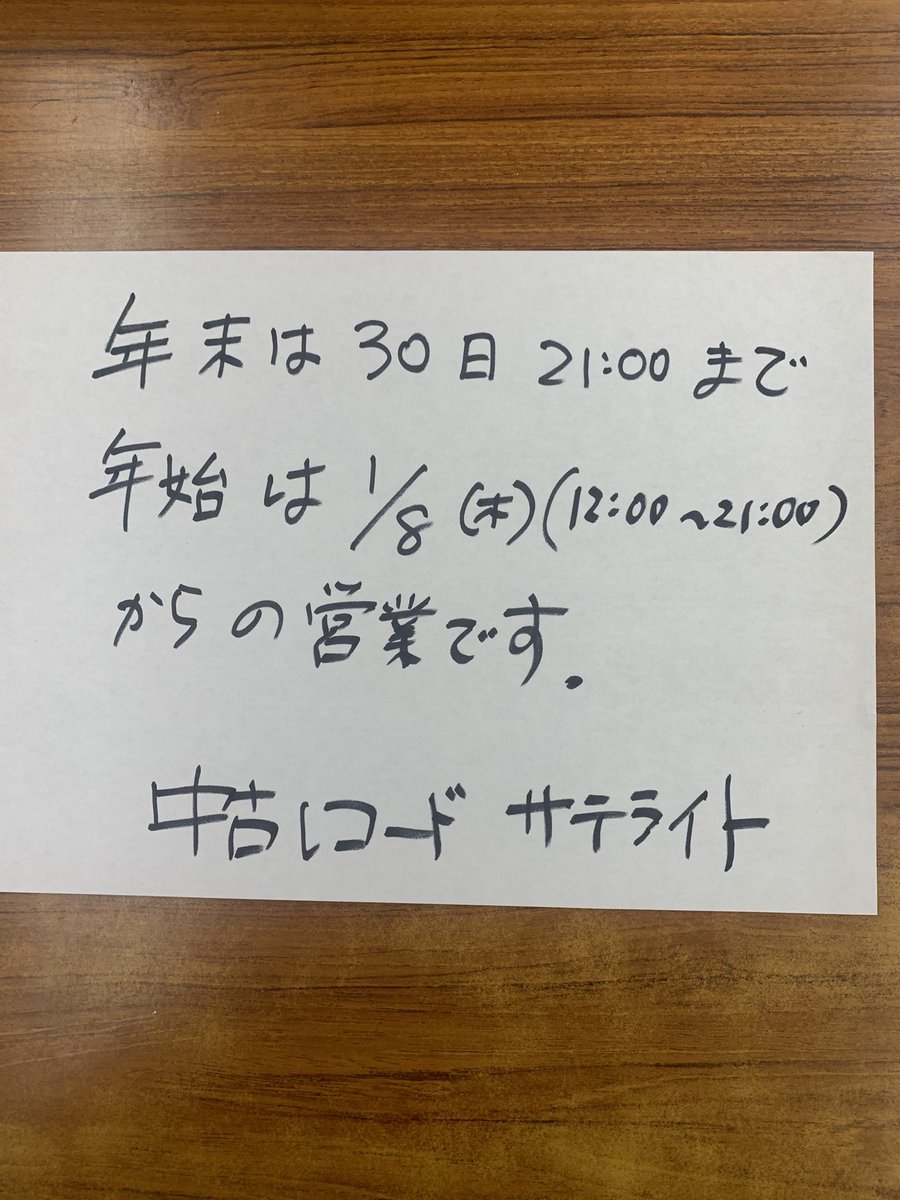 年末は 30日 21:00 まで
年始は 1/8(木)(12:00~21:00)
からの営業です.
中古レコード サテライト